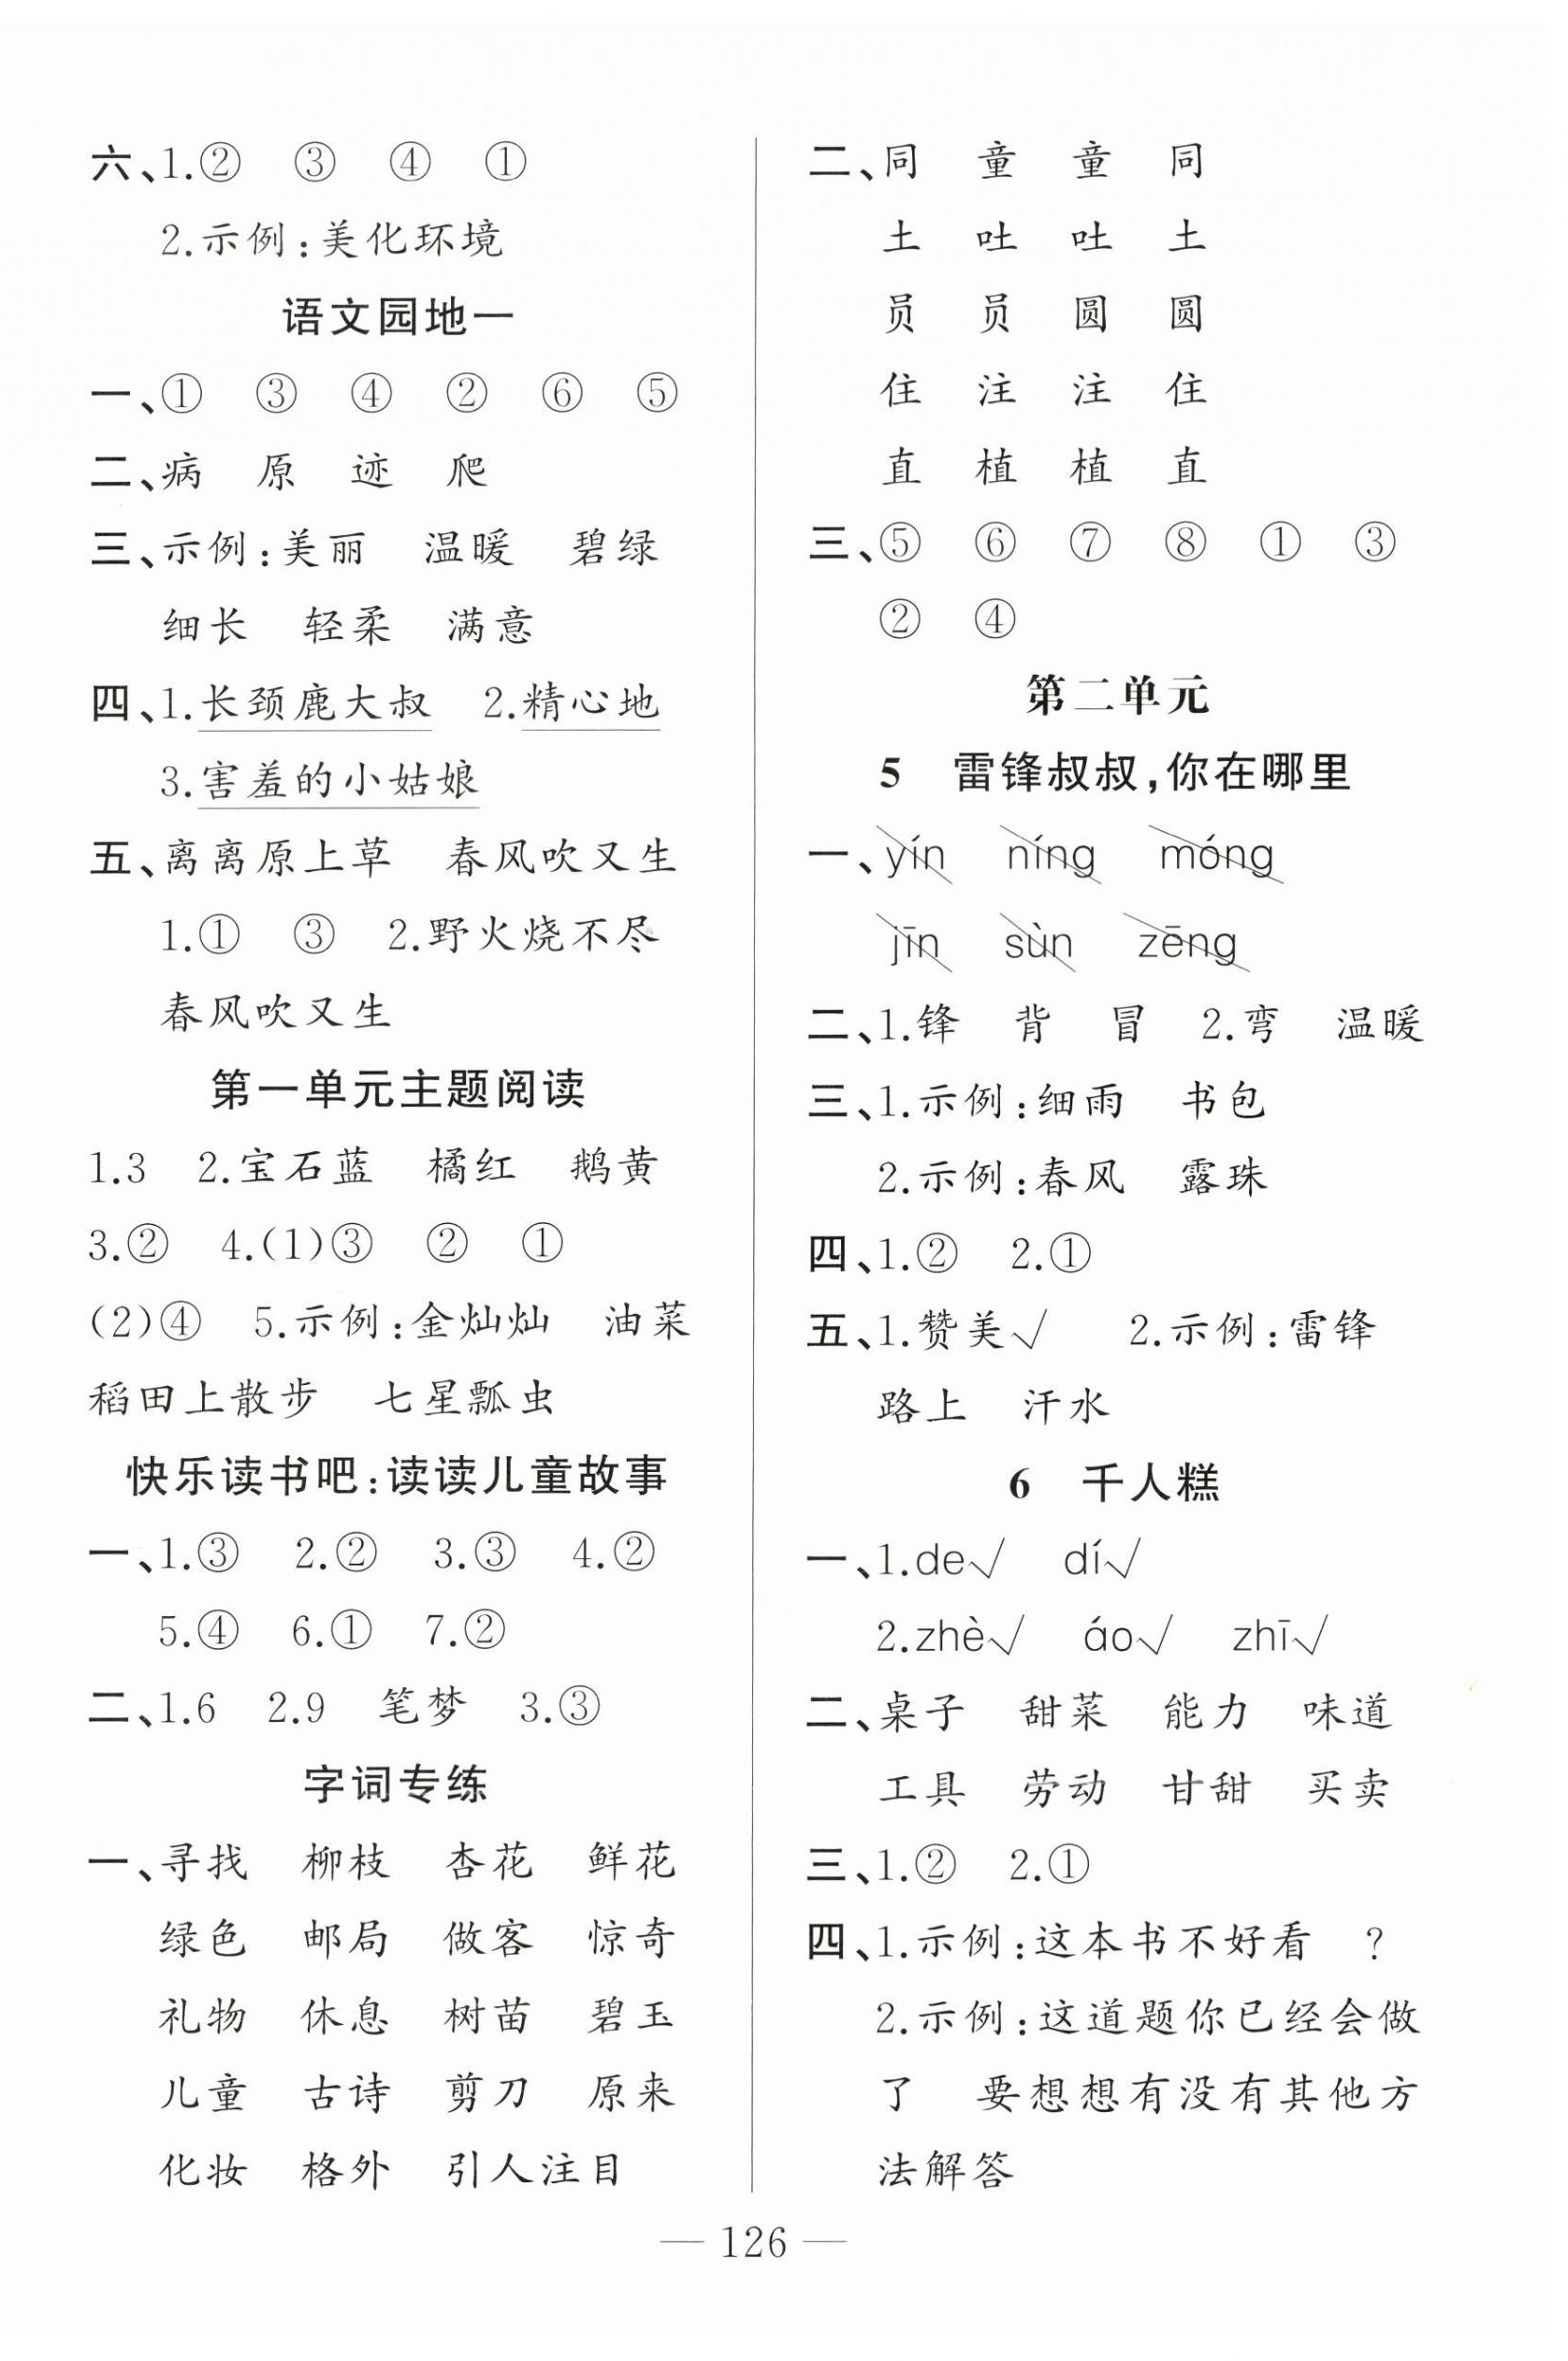 六、1.② ③ ④ ①
2.示例:美化环境
语文园地一
一、① ③ ④ ② ⑥ ⑤
二、病 原 迹 爬
三、示例:美丽 温暖 碧绿
细长 轻柔 满意
四、1.长颈鹿大叔 2.精心地
3.害羞的小姑娘
五、离离原上草 春风吹又生
1.① ③ 2.野火烧不尽
春风吹又生
第一单元主题阅读
1.3 2.宝石蓝 橘红 鹅黄
3.② 4.(1)③ ② ①
(2)④ 5.示例:金灿灿 油菜
稻田上散步 七星瓢虫
快乐读书吧:读读儿童故事
一、1.③ 2.② 3.③ 4.②
5.④ 6.① 7.②
二、1.6 2.9 笔梦 3.③
字词专练
一、寻找 柳枝 杏花 鲜花
绿色 邮局 做客 惊奇
礼物 休息 树苗 碧玉
儿童 古诗 剪刀 原来
化妆 格外 引人注目
二、同 童 童 同
土 吐 吐 土
员 员 圆 圆
住 注 注 住
直 植 植 直
三、⑤ ⑥ ⑦ ⑧ ① ③
② ④
第二单元
5 雷锋叔叔,你在哪里
一、yín níng móng
jīn sùn zēng
二、1.锋 背 冒 2.弯 温暖
三、1.示例:细雨 书包
2.示例:春风 露珠
四、1.② 2.①
五、1.赞美√ 2.示例:雷锋
路上 汗水
6 千人糕
一、1.de√ dí√
2.zhè√ áo√ zhī√
二、桌子 甜菜 能力 味道
工具 劳动 甘甜 买卖
三、1.② 2.①
四、1.示例:这本书不好看 ?
2.示例:这道题你已经会做
了 要想想有没有其他方
法解答
— 126 —